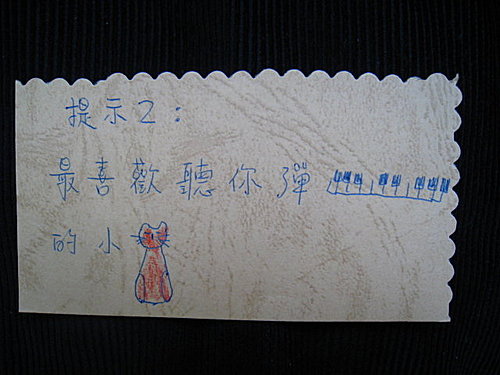 提示2:
最喜歡聽你彈
的小